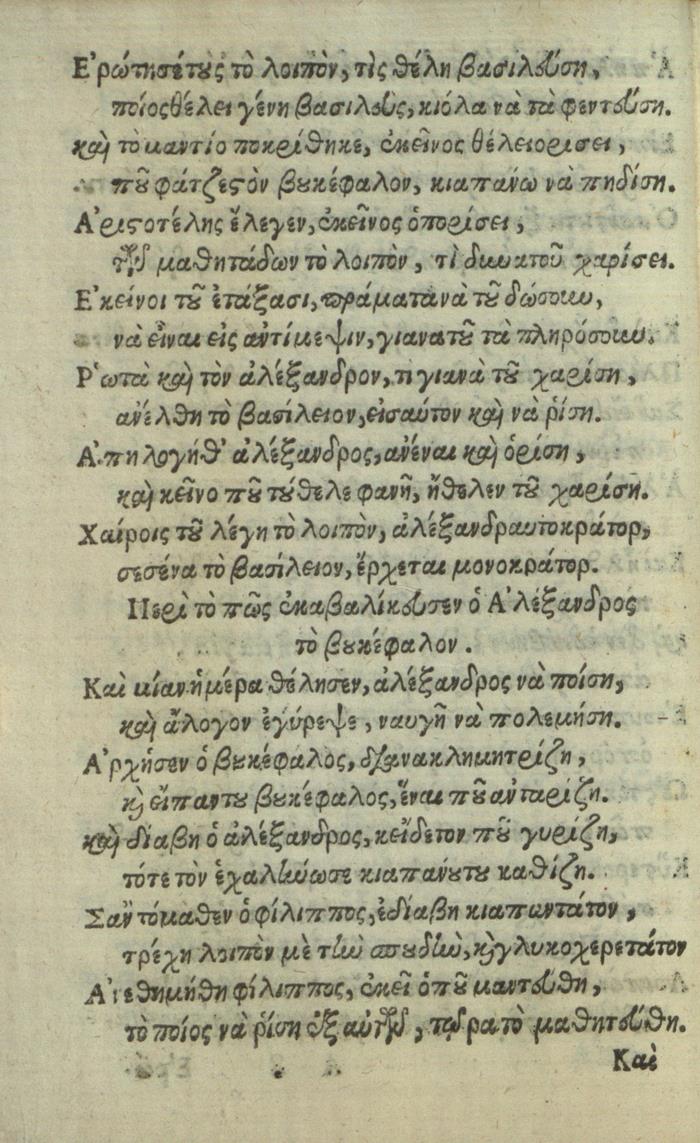 Ε᾿ρώτησέτους τὸ λοιπὸν, τὶς θέλη βασιλεύση,
ποίοςθέλει γένη βασιλεὺς, κιόλα νὰ τὰ φεντεύση.
καὶ τὸ μαντίο ποκρίθηκε, ἐκεῖνος θέλειορισει,
ποῦ φάτζεςὸν βουκέφαλον, κιαπάνω νὰ πηδίση.
Α᾿ριστοτέλης ἔλεγεν, ἐκεῖνος ὁπορίσει,
τῶν μαθητάδων τὸ λοιπὸν, τὶ δυνατοῦ χαρίσει.
Ε᾿κείνοι τοῦ ἐτάξασι, πράματανὰ τοῦ δώσουν,
νὰ εἶναι εἰς αὐτίμεψιν, γιανατοῦ τὰ πληρόσουν.
Ρ῾ωτὰ καὶ τὸν ἀλέξανδρον, τι γιανὰ τοῦ χαρίση,
ἀνέλθη τὸ βασίλειον, εἰσαύτον καὶ νὰ ῥίση.
Α᾿πηλογήθ᾿ ἀλέξανδρος, ἀνέναι καὶ ὁρίση,
καὶ κεῖνο ποῦ τούθελε φανῆ, ἤθελεν τοῦ χαρίση.
Χαίροις τοῦ λέγη τὸ λοιπὸν, ἀλέξανδραυτοκράτορ,
σεσένα τὸ βασίλειον, ἔρχεται μονοκράτορ.
Περὶ τὸ πῶς ἐκαβαλίκευσεν ὁ Α᾿λέξανδρος
τὸ βουκέφαλον.
Καὶ μίαν ἡμέρα θέλησεν, ἀλέξανδρος νὰ ποίση,
καὶ ἄλογον ἐγύρεψε, ναυγῆ νὰ πολεμήση.
Α᾿ρχήσεν ὁ βουκέφαλος, διανακλημητρίζη,
κὶ εἴπαντου βουκέφαλος, ἔναι ποῦ ἀνταρίζη.
καὶ διαβη ὁ ἀλέξανδρος, κεἴδετον ποῦ γυρίζη,
τότε τὸν ἐχαλίνωσε κιαπανουτου καθίζη.
Σαν τόμαθεν ὁ φίλιππος, ἐδιαβη κιαπωντάτον,
τρέχη λοιπὸν μὲ τὴν σπουδὴν, κὶ γλυκοχερετάτον
Α᾿νεθημήθη φίλιππος, ἐκεῖ ὁποῦ μαντεύθη,
τὸ ποίος νὰ ῥίση ἐξ αὐτῶν, παρατὸ μαθητεύθη.
Καὶ